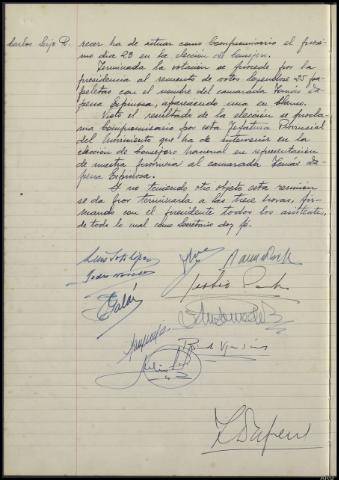 Carlos Seijo P. recer ha de actuar como Compromisario el próxi-
mo día 23 en la elección de Consejero.
Terminada la votación se procede por la
presidencia al recuento de votos leyéndose 25 pa-
peletas con el nombre del camarada Tomás Da-
pena Espinosa, apareciendo una en blanco.
Visto el resultado de la elección se procla-
ma Compromisario por esta Jefatura Provincial
del Movimiento que ha de intervenir en la
elección de Consejero nacional en representación
de nuestra provincia al camarada Tomás Da-
pena Espinosa.
Y no teniendo otro objeto esta reunión
se da por terminada a las trece horas, fir-
mando con el presidente todos los asistentes,
de todo lo cual como Secretario doy fe.
Luis
Pedro
Galán
T. Dapena